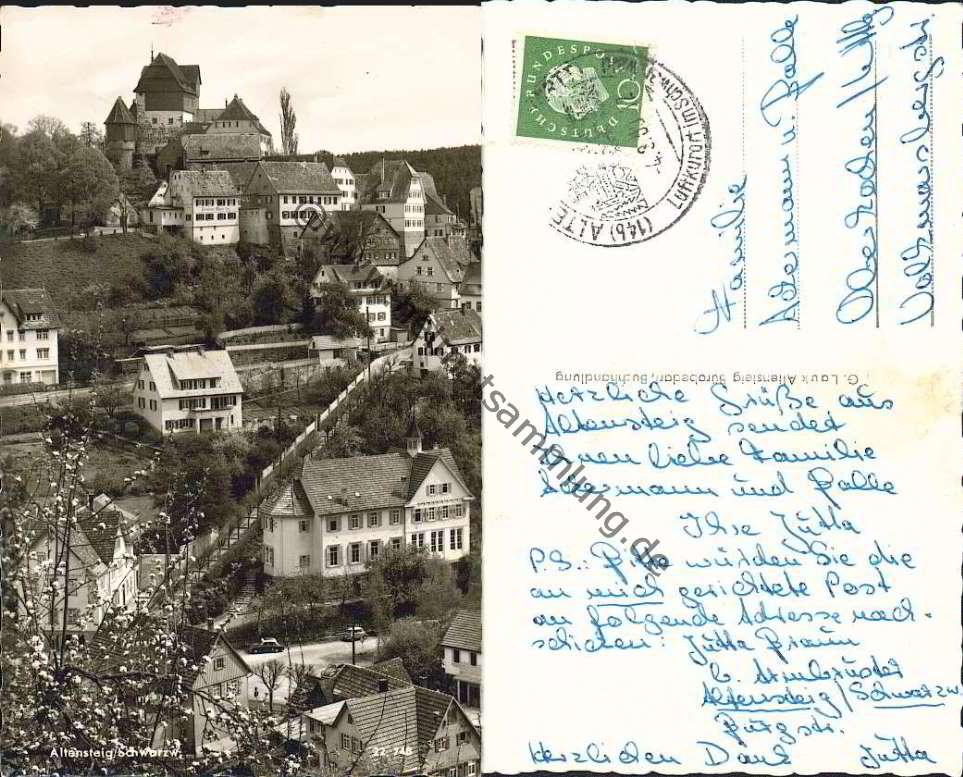 Altensteig/Schwarzw.
22 748
DEUTSCHE BUNDESPOST
10
(14b) ALTE
Luftkurort im Schw
Familie
u. Palle
G. Lauk Altensteig Bürobedarf, Buchhandlung
Herzliche Grüße aus
Altensteig sendet
Ihnen liebe Familie
Adermann und Palle
Ihre Jutta
P.S.: Bitte würden Sie die
an mich gerichtete Post
an folgende Adresse nach-
schicken: Jutta Braun
b. Armbruster
Altensteig/Schwarzw
Burgstr.
Herzlichen Dank Jutta
www.postsammlung.de